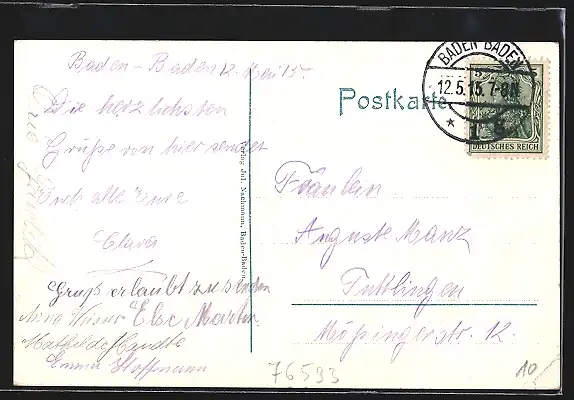 Baden-Baden 12. Mai 15.
Die herzlichsten
Grüße von hier sendet
Euch alle Eure
Clara
Gruß erlaubt zu senden
Else Martin
Emma Hoffmann
Verlag Jul. Nachmann, Baden-Baden
Postkarte
BADEN BADEN
12.5.15. 7-8 N
DEUTSCHES REICH
Fräulein
Auguste Manz
Tuttlingen
Möhringerstr. 12.
76593
10